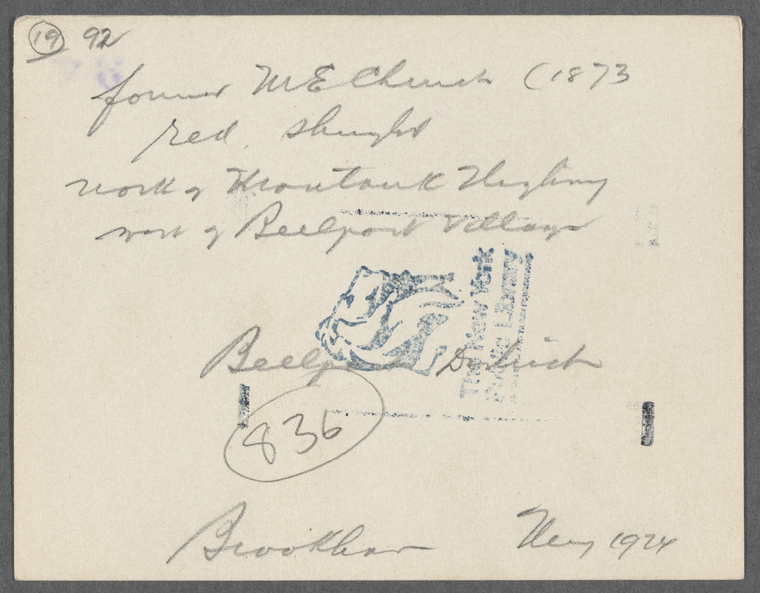 19 92
former M E Church (1873
red, shingled
north of Montauk Highway
west of Bellport Village
The New York
Public Library
Bellport District
836
Brookhaven May 1924